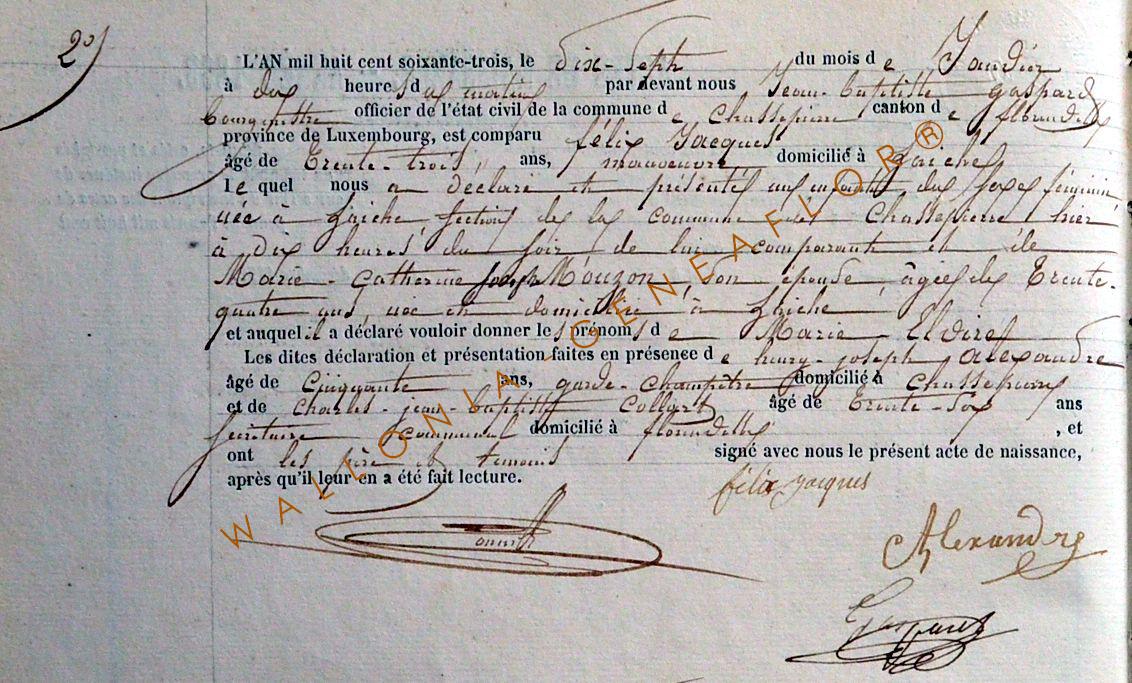 2)
L'AN mil huit cent soixante-trois, le dix-Sept du mois de Janvier
à dix heures du matin par devant nous Jean-baptiste gaspard
bourgmestre officier de l'état civil de la commune de Chassepierre canton de florenville
province de Luxembourg, est comparu félix Jacques
âgé de trente-trois ans, manoeuvre domicilié à Laiche
le quel nous a déclaré et présenté un enfant du sexe féminin
née à Laiche section de la commune de Chassepierre hier
à dix heures du soir de lui comparant et de
Marie-Catherine joseph Mouzon, son épouse, âgée de trente-
quatre ans, née et domiciliée à Laiche
et auquel il a déclaré vouloir donner les prénoms de Marie Elvire
Les dites déclaration et présentation faites en présence de henry-joseph alexandre
âgé de Cinquante ans, garde-champêtre domicilié à Chassepierre
et de Charles-jean-baptiste Collart âgé de trente-six ans
secrétaire communal domicilié à florenville, et
ont les père et témoins signé avec nous le présent acte de naissance,
après qu'il leur en a été fait lecture. félix jacques
Alexandre
Gaspard
WALLONIA-GENEAFLOR®